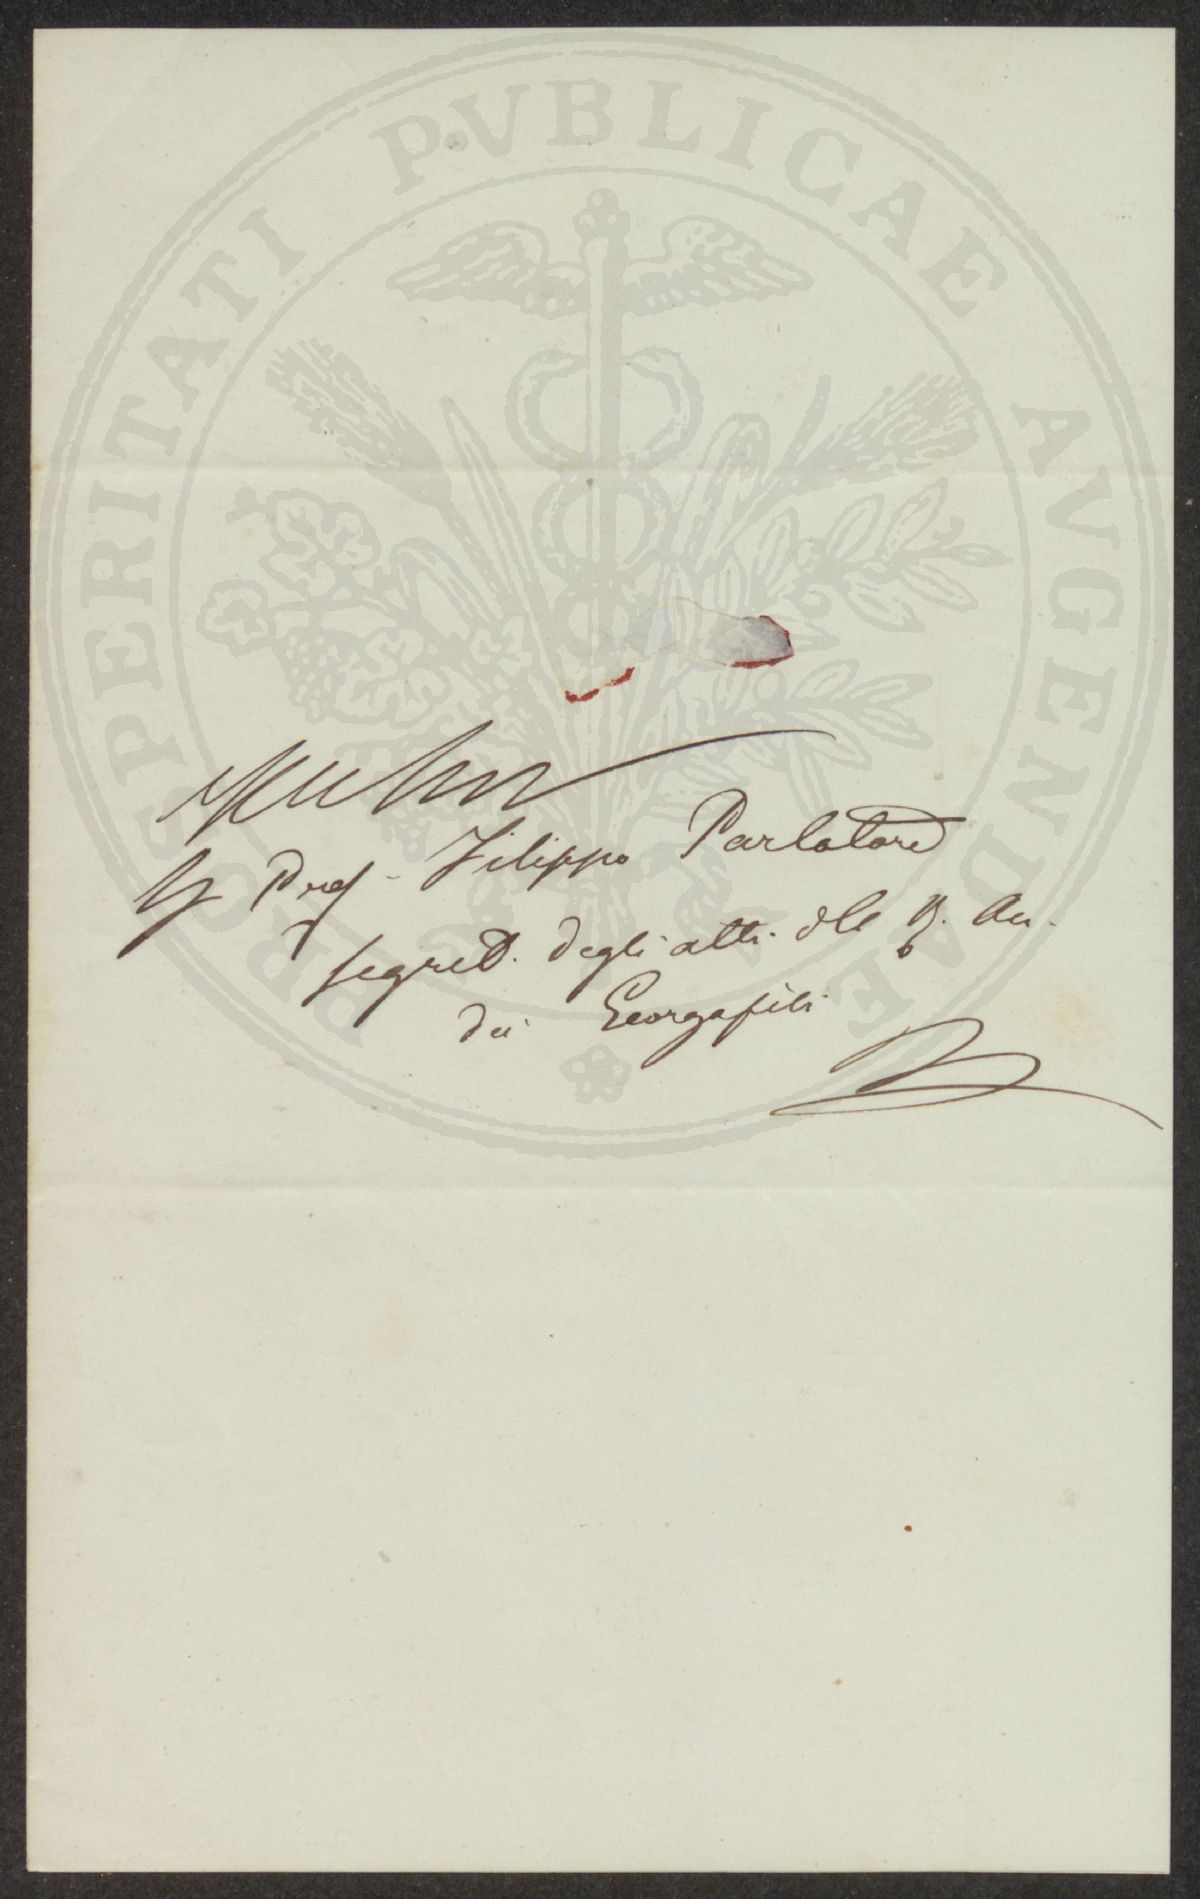 PROSPERITATI PVBLICAE AVGENDAE
Prof. Filippo Parlatore
segret. degli atti. della R. Acc.
dei Georgofili